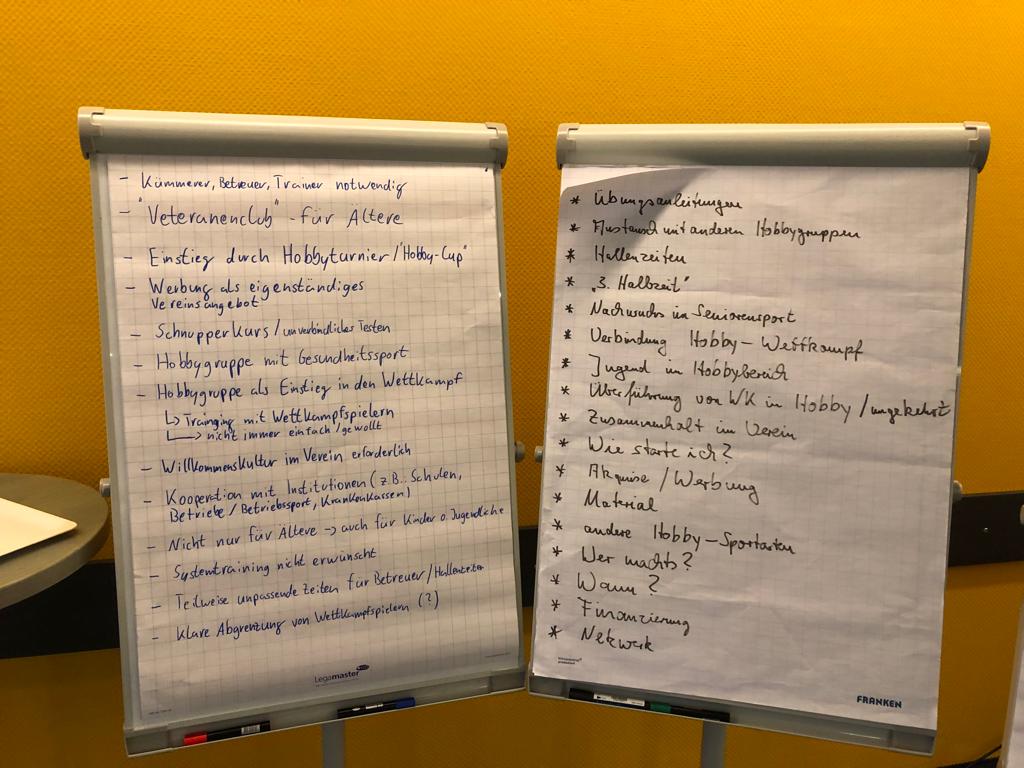 - Kümmerer, Betreuer, Trainer notwendig
- "Veteranenclub" - für Ältere
- Einstieg durch Hobbyturnier/"Hobby-Cup"
- Werbung als eigenständiges
Vereinsangebot
- Schnupperkurs/unverbindliches Testen
- Hobbygruppe mit Gesundheitssport
- Hobbygruppe als Einstieg in den Wettkampf
↳ Trainging mit Wettkampfspielern
↳ nicht immer einfach/gewollt
- Willkommenskultur im Verein erforderlich
- Kooperation mit Institutionen (z.B. Schulen,
Betriebe/Betriebssport, Krankenkassen)
- Nicht nur für Ältere → auch für Kinder o. Jugendliche
- Systemtraining nicht erwünscht
- Teilweise unpassende Zeiten für Betreuer/Hallenzeiten
- Klare Abgrenzung von Wettkampfspielern (?)
Legamaster
* Übungsanleitungen
* Austausch mit anderen Hobbygruppen
* Hallenzeiten
* „3. Halbzeit"
* Nachwuchs im Seniorensport
* Verbindung Hobby-Wettkampf
* Jugend im Hobbybereich
* Überführung von WK in Hobby/umgekehrt
* Zusammenhalt im Verein
* Wie starte ich?
* Akquise/Werbung
* Material
* andere Hobby-Sportarten
* Wer machts?
* Wann?
* Finanzierung
* Netzwerk
FRANKEN